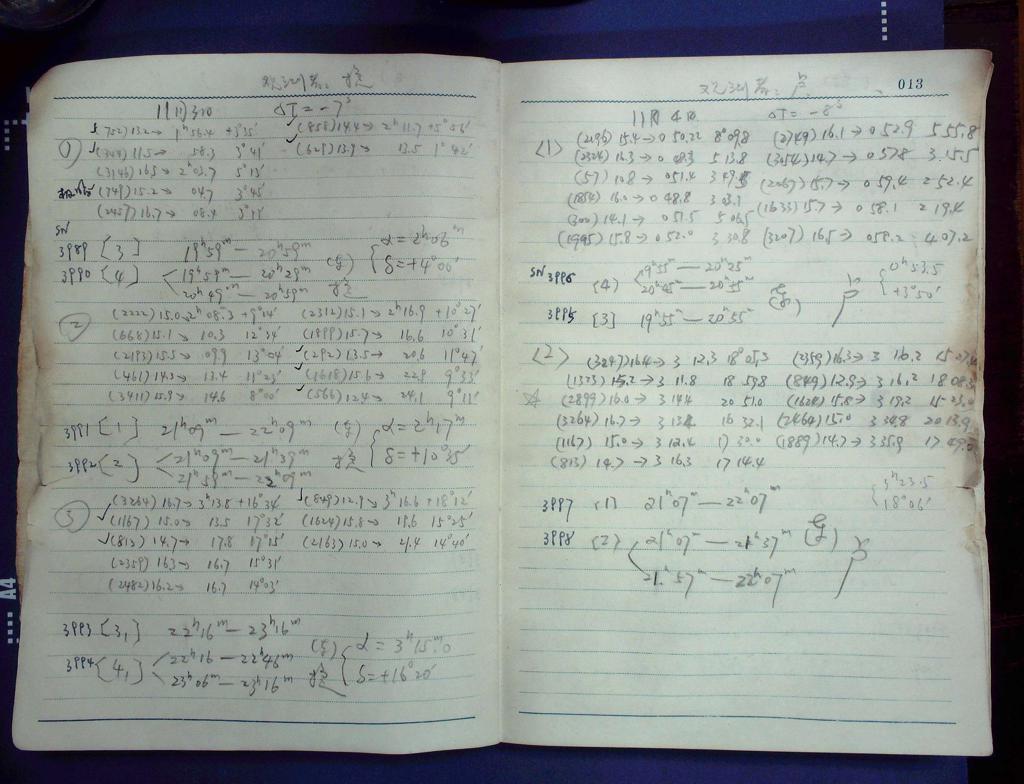 观测者:
11月3日 ΔT = -7ˢ
① (752)13.2→ 1ʰ56.4 +3°35′ ✓(858)14.4→ 2ʰ11.7 +5°56′
✓ 11.5→ 58.3 3°41′ ✓(629)13.9→ 13.5 1°42′
(3146)16.5→ 2ʰ03.7 5°13′
(749)15.2→ 04.7 3°45′
(2457)16.7→ 08.4 3°11′
SN
3989 [3] 19ʰ59ᵐ — 20ʰ59ᵐ α=2ʰ06ᵐ
3990 [4] 19ʰ59ᵐ — 20ʰ29ᵐ δ=+4°00′
20ʰ49ᵐ — 20ʰ59ᵐ
② (2222)15.0→2ʰ08.3 +9°14′ (2312)15.1→ 2ʰ16.9 +10°27′
(668)15.1→ 10.3 12°34′ (1899)15.7→ 16.6 10°31′
(2193)15.5→ 09.9 13°04′ ✓(292)13.5→ 20.6 11°47′
(461)14.3→ 13.4 11°23′ ✓(1618)15.6→ 22.9 9°33′
(3411)15.9→ 14.6 8°00′ ✓(566)12.4→ 24.1 9°11′
3991 [1] 21ʰ09ᵐ — 22ʰ09ᵐ α=2ʰ17ᵐ
3992 [2] 21ʰ09ᵐ — 21ʰ39ᵐ δ=+10°35′
21ʰ59ᵐ — 22ʰ09ᵐ
③ (3264)16.7→ 3ʰ13.8 +16°34′ ✓(849)12.9→ 3ʰ16.6 +18°12′
✓(1167)15.0→ 13.5 17°32′ (1624)15.8→ 19.6 15°25′
✓(813)14.7→ 17.8 17°15′ (2163)15.0→ 21.4 14°40′
(2359)16.3→ 16.7 15°31′
(2482)16.2→ 16.7 14°03′
3993 [3₁] 22ʰ16ᵐ — 23ʰ16ᵐ α=3ʰ15ᵐ.0
3994 [4₁] 22ʰ16 — 22ʰ46ᵐ δ=+16°20′
23ʰ06ᵐ — 23ʰ16ᵐ
观测者: 013
11月4日 ΔT = -8ˢ
<1> (2196)15.4→ 0 50.22 8°09.8 (2749)16.1→ 0 52.9 5 55.8
(2324)16.3→ 0 48.3 5 13.8 (3054)14.7→ 0 57.8 3.15.5
(57)10.8→ 0 51.4 (2067)15.7→ 0 59.4 2 52.4
(1854)16.0→ 0 48.8 3 03.1 (1633)15.7→ 0 58.1 2 19.4
(300)14.1→ 0 51.5 5 06.5
(1995)15.8→ 0 52.0 3 30.8 (3207)16.5→ 0 59.2 4.07.2
SN 3996 (4) 19ʰ55ᵐ — 20ʰ25ᵐ 0ʰ53.5
20ʰ45ᵐ — 20ʰ55ᵐ +3°50′
3995 [3] 19ʰ55ᵐ — 20ʰ55ᵐ
<2> (3247)16.4→ 3 12.3 18°05.3 (2359)16.3→ 3 16.2
(1323)15.2→ 3 11.8 18 59.8 (849)12.9→ 3 16.2 18 08.3
☆ (2899)16.0→ 3 14.4 20 51.0 (1624)15.8→ 3 19.2 15 23.0
(3264)16.7→ 3 13.4 16 32.1 (2464)15.0 3 34.8 20 13.9
(1167)15.0→ 3 12.4 17 30.0 (1889)14.7→ 3 35.9 17
(813)14.7→ 3 16.3 17 14.4
3ʰ23.5
18°06′
3997 (1) 21ʰ07ᵐ — 22ʰ07ᵐ
3998 (2) 21ʰ07ᵐ — 21ʰ37ᵐ
21ʰ57ᵐ — 22ʰ07ᵐ
A4